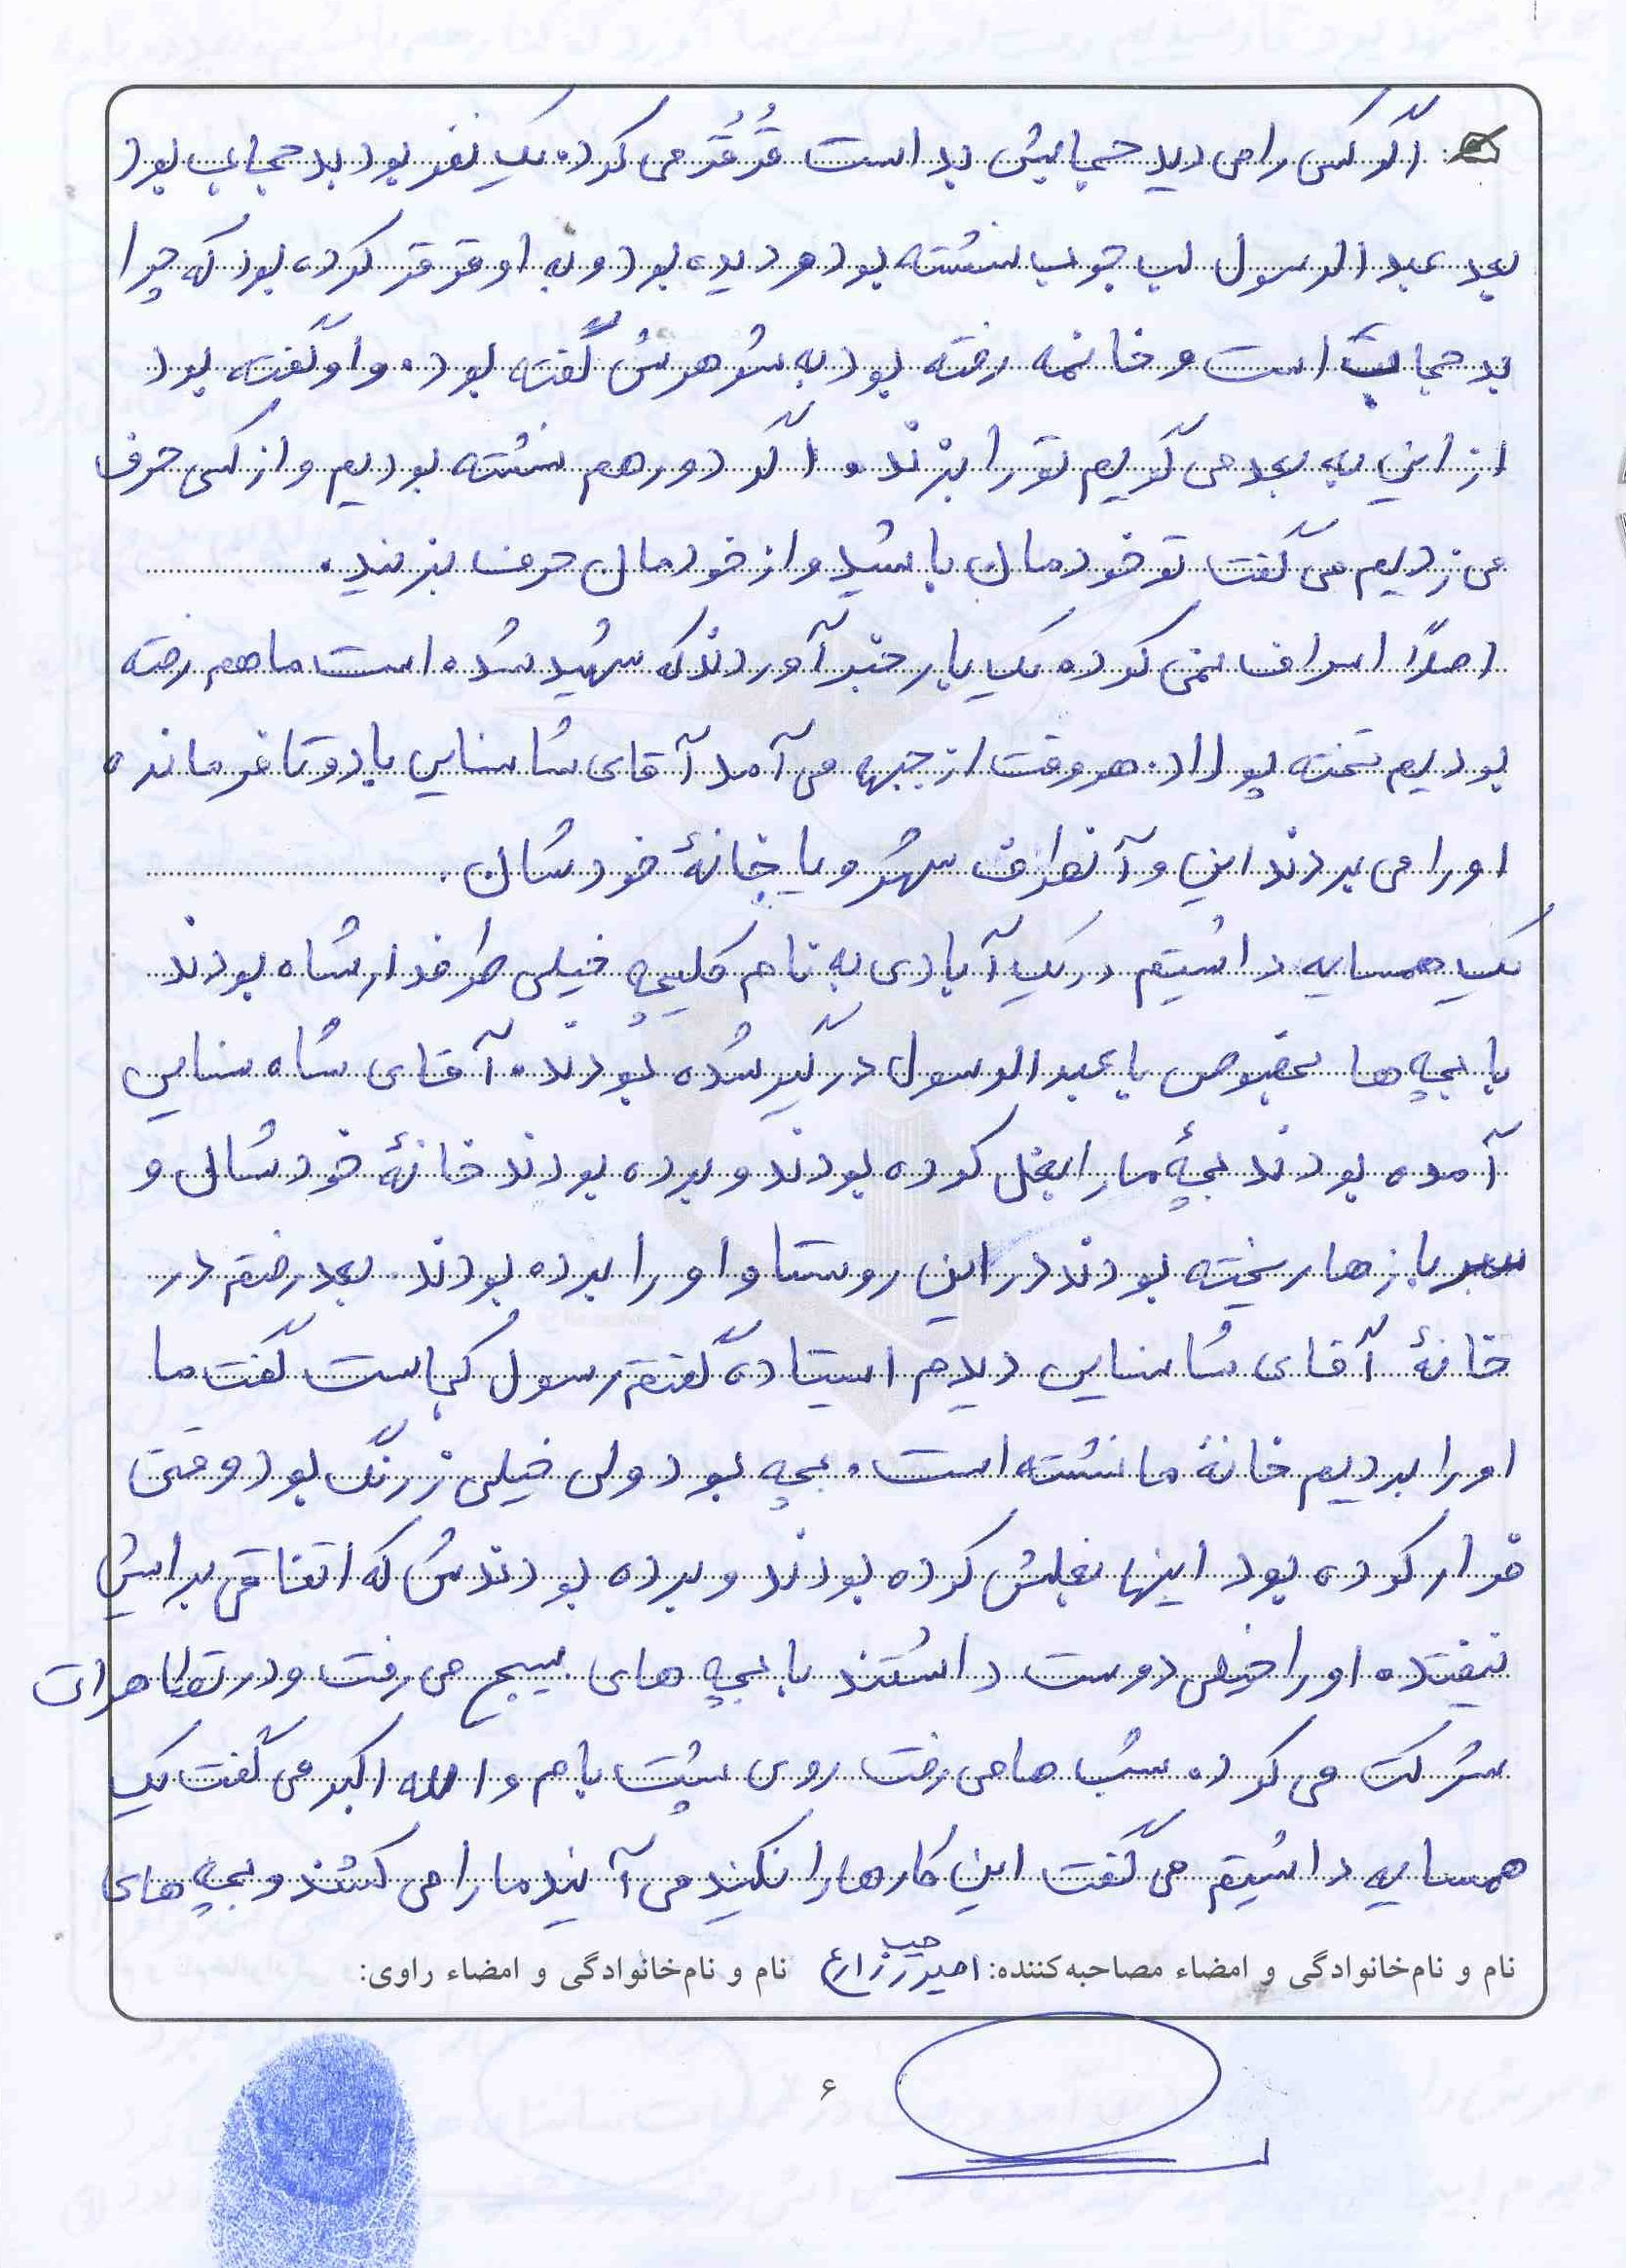 اگر کسی را می دید حجابش بد است قُر قُر می کرد. یک نفر بود بد حجاب بود
بعد عبدالرسول لب جوب نشسته بود و دیده بود و به او قر قر کرده بود که چرا
بد حجاب است و خانمه رفته بود به شوهرش گفته بود. و او گفته بود
از این به بعد می گویم تو را بزند. اگر دور هم نشسته بودیم و از کسی حرف
می زدیم می گفت تو خودمان باشید و از خودمان حرف بزنید.
اصلاً اسراف نمی کرد. یک بار خبر آوردند که شهید شده است ما هم رفته
بودیم تخته پولاد. هر وقت از جبهه می آمد آقای شاسنایی با دو تا فرمانده
او را می بردند این و آنطرف شهر و یا خانهٔ خودشان.
یک همسایه داشتیم در یک آبادی به نام کلیچه خیلی طرفدار شاه بودند
با بچه ها بخصوص با عبدالرسول درگیر شده بودند. آقای شاه سنایی
آمده بودند بچهٔ ما را بغل کرده بودند و برده بودند خانهٔ خودشان و
سربازها ریخته بودند در این روستا و او را برده بودند بعد رفتم در
خانهٔ آقای شاسنایی دیدم ایستاده گفتم رسول کجاست گفت ما
او را بردیم خانهٔ ما نشسته است. بچه بود ولی خیلی زرنگ بود وقتی
فرار کرده بود اینها بغلش کرده بودند و برده بودندش که اتفاقی برایش
نیفتد. او را خیلی دوست داشتند با بچه های بسیج می رفت و در تظاهرات
شرکت می کرد. شب ها می رفت روی پشت بام و الله اکبر می گفت یک
همسایه داشتیم می گفت این کارها را نکنید می آیند ما را می کشند و بچه های
نام و نام‌خانوادگی و امضاء مصاحبه‌کننده: امیر زارع نام و نام‌خانوادگی و امضاء راوی:
۶